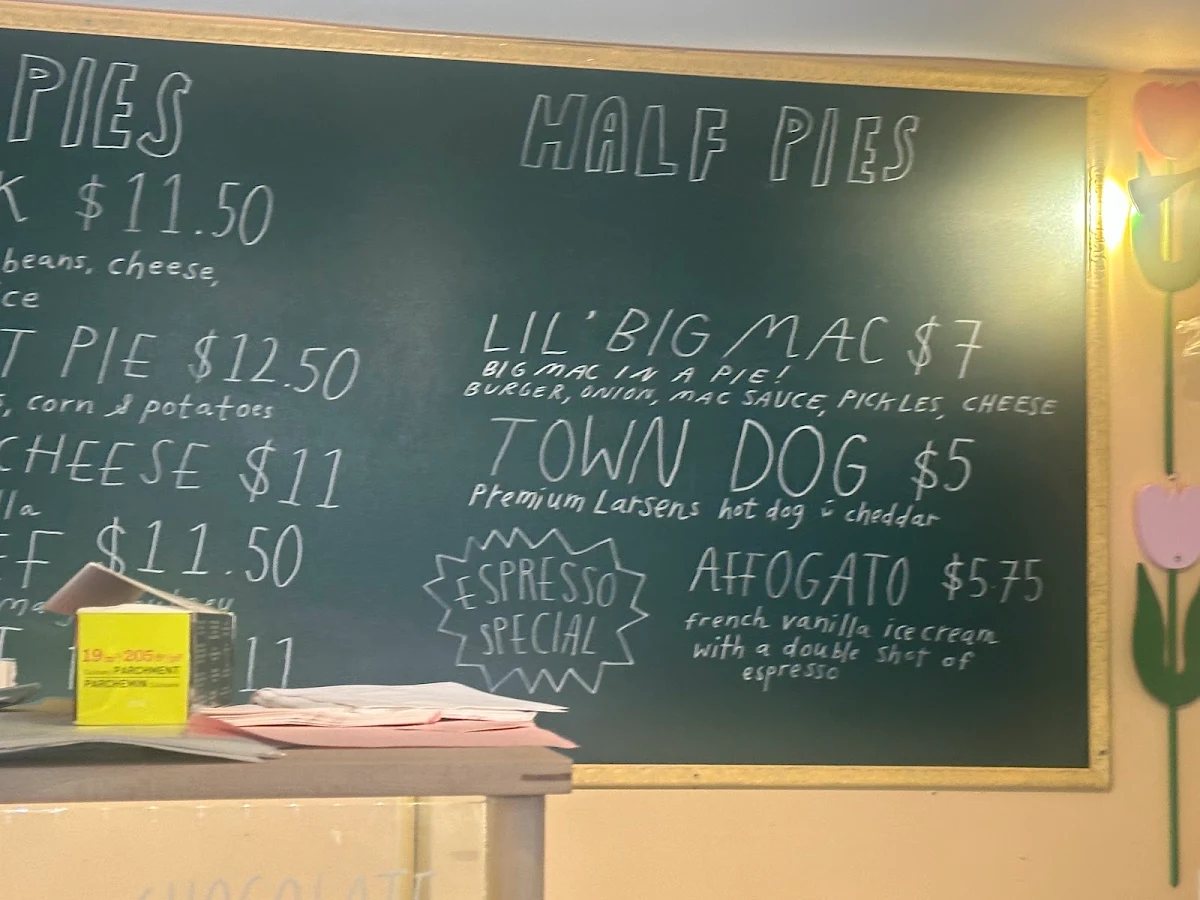 PIES
K $11.50
beans, cheese,
ice
T PIE $12.50
, corn & potatoes
CHEESE $11
lla
EF $11.50
T 11
HALF PIES
LIL' BIG MAC $7
BIG MAC IN A PIE!
BURGER, ONION, MAC SAUCE, PICKLES, CHEESE
TOWN DOG $5
Premium Larsens hot dog & cheddar
ESPRESSO
SPECIAL
AFFOGATO $5.75
french vanilla ice cream
with a double shot of
espresso
PARCHMENT
PARCHEMIN
CHOCOLATE